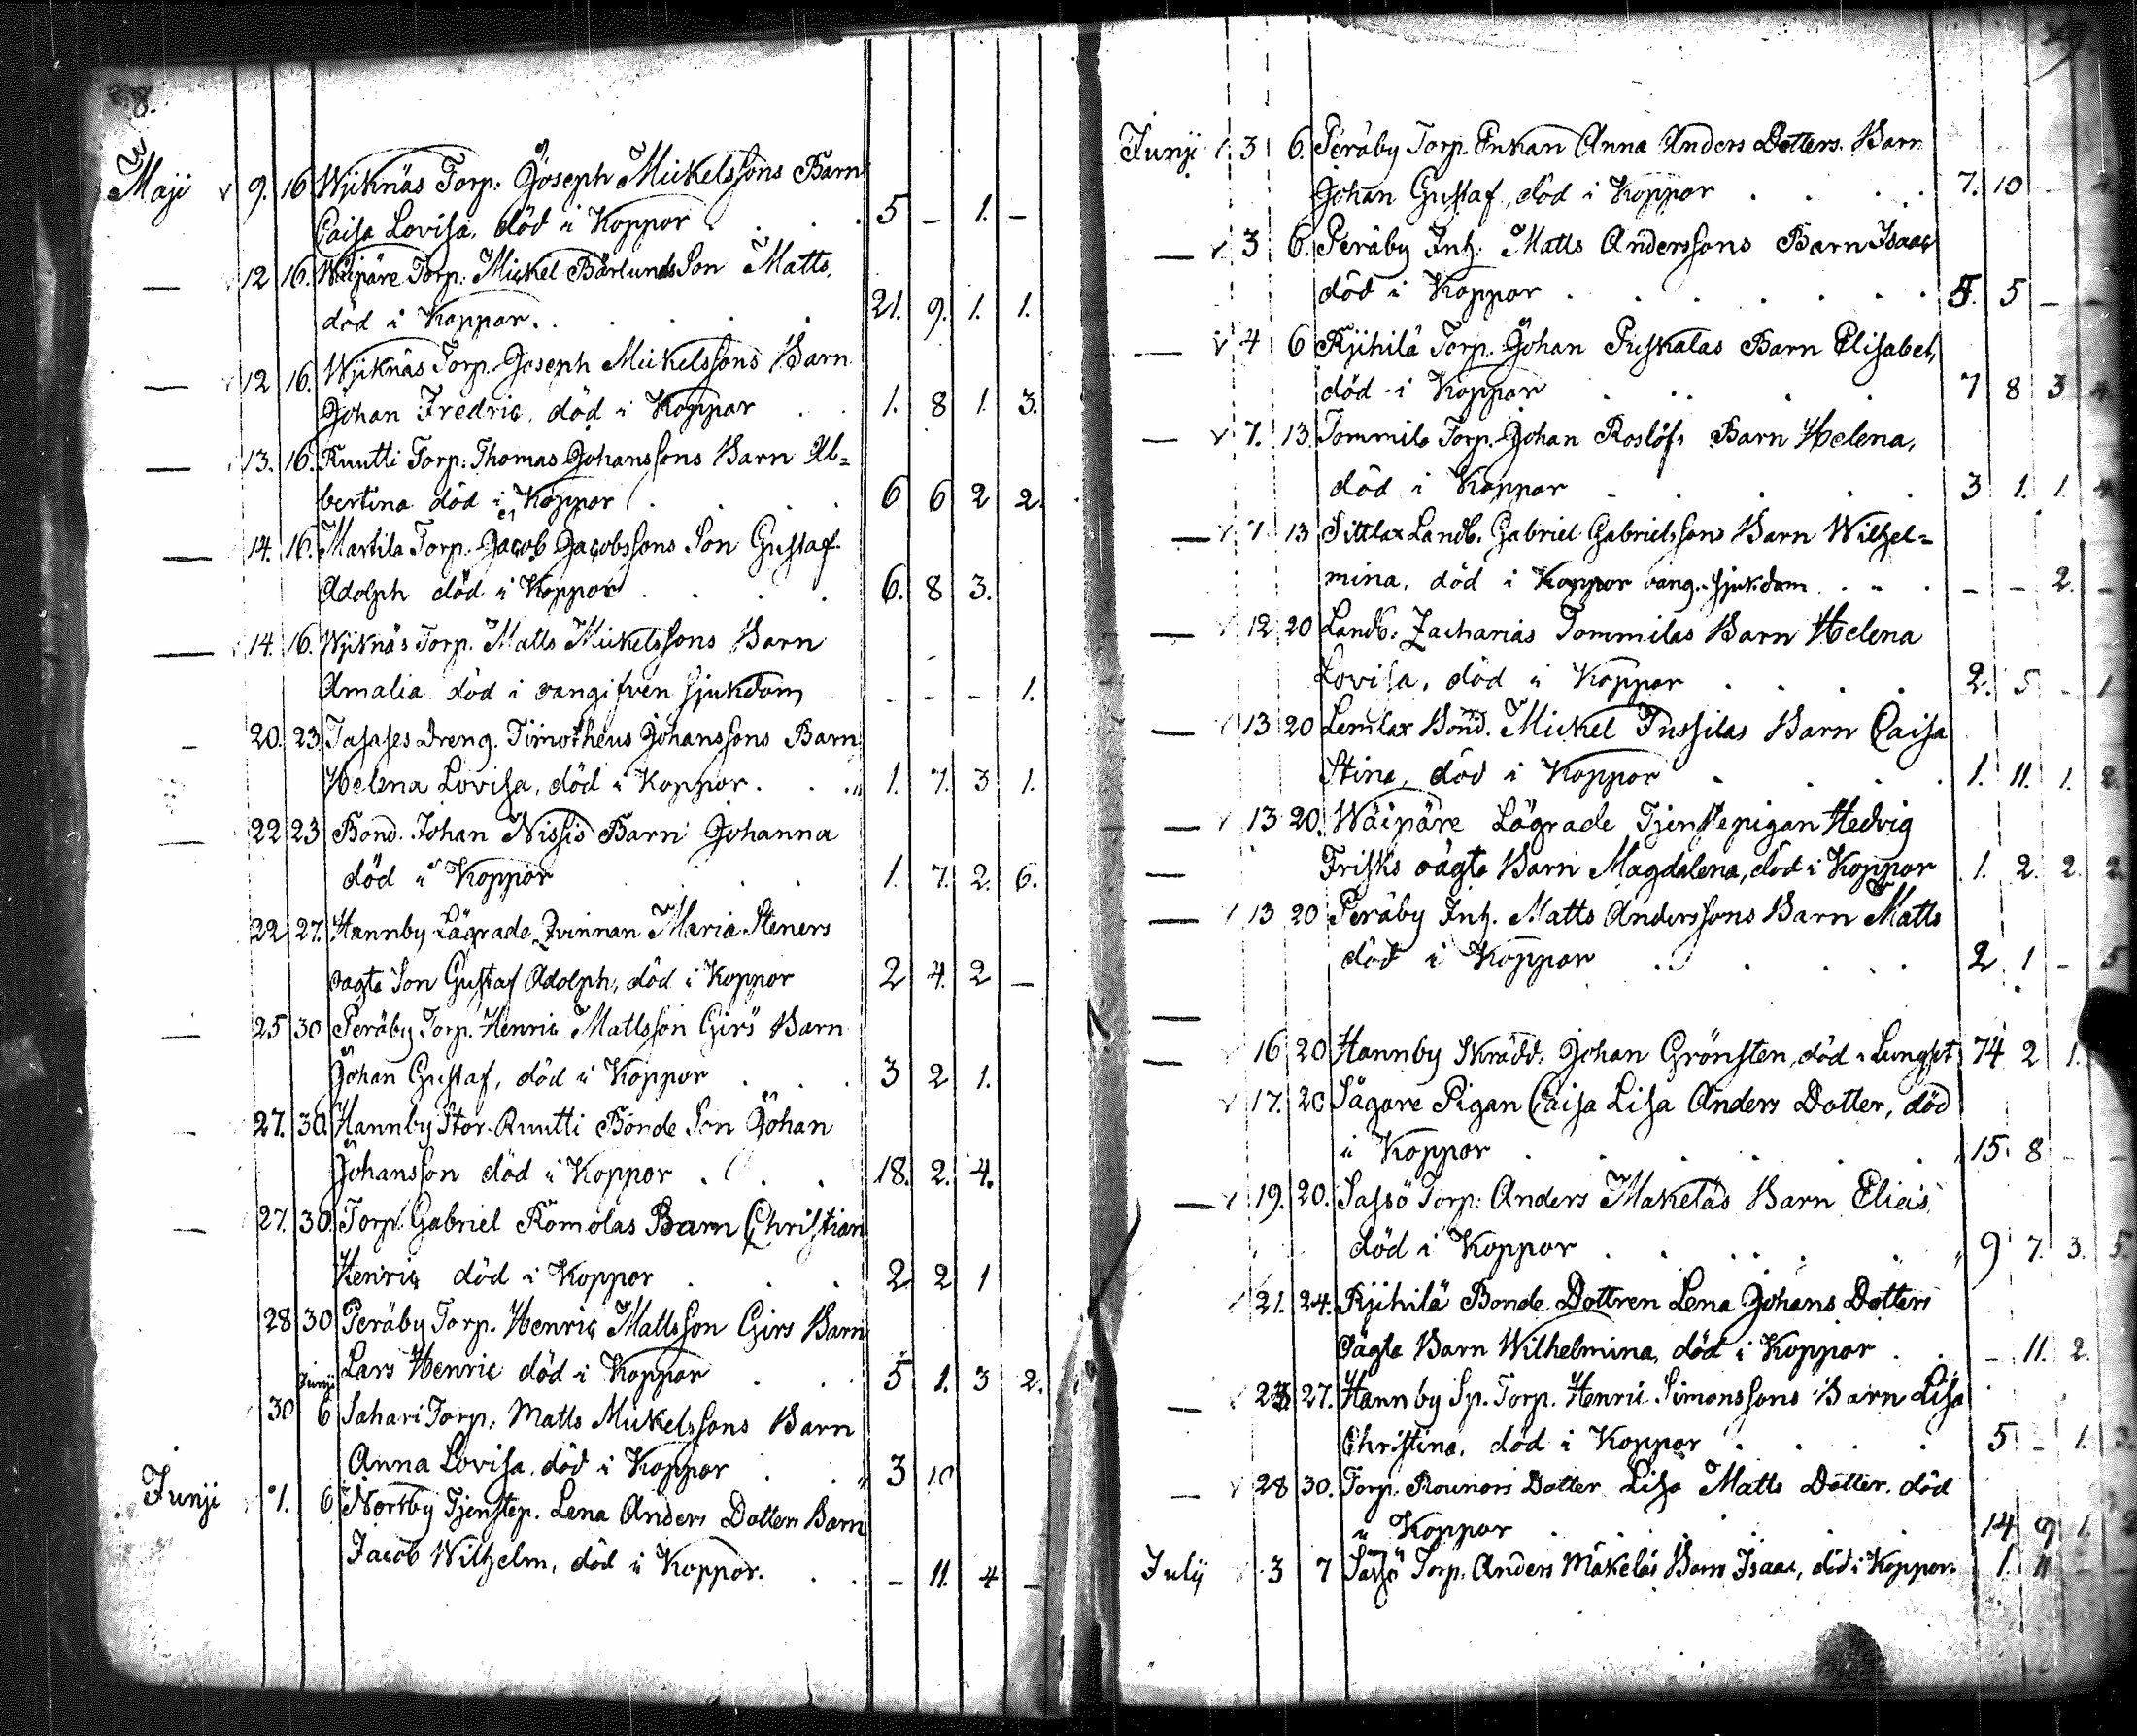 8.
Maji 9. 16 Wijknäs Torp. Joseph Mickelssons Barn
Caisa Lovisa, död i Koppor 5 - 1. -
— 12 16. Wäipäre Torp: Mickel Bärlunds Son Matts,
död i Koppor. 21. 9. 1. 1.
— 12 16. Wijknäs Torp. Joseph Mickelssons Barn
Johan Fredric, död i Koppor 1. 8 1. 3.
— 13. 16. Ruutti Torp: Thomas Johanssons Barn Al=
bertina död i Koppor 6. 6 2 2.
— 14. 16. Martila Torp. Jacob Jacobssons Son Gustaf
Adolph död i Koppor 6. 8 3.
— 14. 16. Wijknäs Torp. Matts Mickelssons Barn
Amalia död i oangifven sjukdom - - - 1.
— 20. 23. Dreng. Timotheus Johanssons Barn
Helena Lovisa, död i Koppor. 1. 7. 3 1.
— 22 23 Bond. Johan Nissis Barn Johanna
död i Koppor 1. 7. 2. 6.
22 27. Hannby Lägrade Qvinnan Maria Steners
oägta Son Gustaf Adolph, död i Koppor 2 4. 2 -
— 25 30 Peräby Torp. Henric Mattsson Girs Barn
Johan Gustaf, död i Koppor 3 2 1.
— 27. 30. Hannby Stor-Ruutti Bonde Son Johan
Johansson död i Koppor 18. 2. 4.
— 27. 30. Torp. Gabriel Romolas Barn Christian
Henric död i Koppor 2 2 1
28 30 Peräby Torp. Henric Mattsson Girs Barn
Lars Henric död i Koppor 5 1. 3 2.
Junji
30 6 Sahari Torp: Matts Mickelssons Barn
Anna Lovisa, död i Koppor 3 10
Junji 1. 6 Norrby Tjenstep. Lena Anders Dotters Barn
Jacob Wilhelm, död i Koppor. - 11. 4 -
Junji 3 6. Peräby Torp. Enkan Anna Anders Dotters Barn
Johan Gustaf, död i Koppor 7. 10 -
— 3 6. Peräby Inh. Matts Anderssons Barn Isaac
död i Koppor 5 -
— 4 6 Rijhilä Torp. Johan Puskalas Barn Elisabet,
död i Koppor 7 8 3
— 7. 13. Tommila Torp. Johan Roslöfs Barn Helena,
död i Koppor 3 1. 1.
— 7 13 Sittlax Landb. Gabriel Gabrielssons Barn Wilhel=
mina, död i oang. sjukdom - - 2. -
— 12 20 Landb. Zacharias Tommilas Barn Helena
Lovisa, död i Koppor 2. 5 - 1
— 13 20 Lemlax Bond. Mickel Tussilas Barn Caisa
Stina, död i Koppor 1. 11. 1. 2
— 13 20. Wäipäre Lägrade Tjenstepigan Hedvig
— Frisks oägta Barn Magdalena, död i Koppor 1. 2. 2. 2
— 13 20 Peräby Inh. Matts Anderssons Barn Matts
död i Koppor 2. 1 - 5
—
— 16 20 Hannby Skrädd. Johan Grönsten, död i Lungsot 74 2 1.
17. 20 Sågare Pigan Caisa Lisa Anders Dotter, död
i Koppor 15. 8 -
— 19. 20. Sassö Torp: Anders Mäkeläs Barn Elias
död i Koppor 9 7. 3. 5
21. 24. Rijhilä Bonde Dottren Lena Johans Dotters
oägta Barn Wilhelmina, död i Koppor - 11. 2.
— 23 27. Hannby Sp. Torp. Henric Simonssons Barn Lisa
Christina, död i Koppor 5 - 1.
— 28 30. Torp. Dotter Lisa Matts Dotter, död
i Koppor 14 9 1.
Julij 3 7 Sassö Torp. Anders Mäkeläs Barn Isaac, död i Koppor. 1. 11